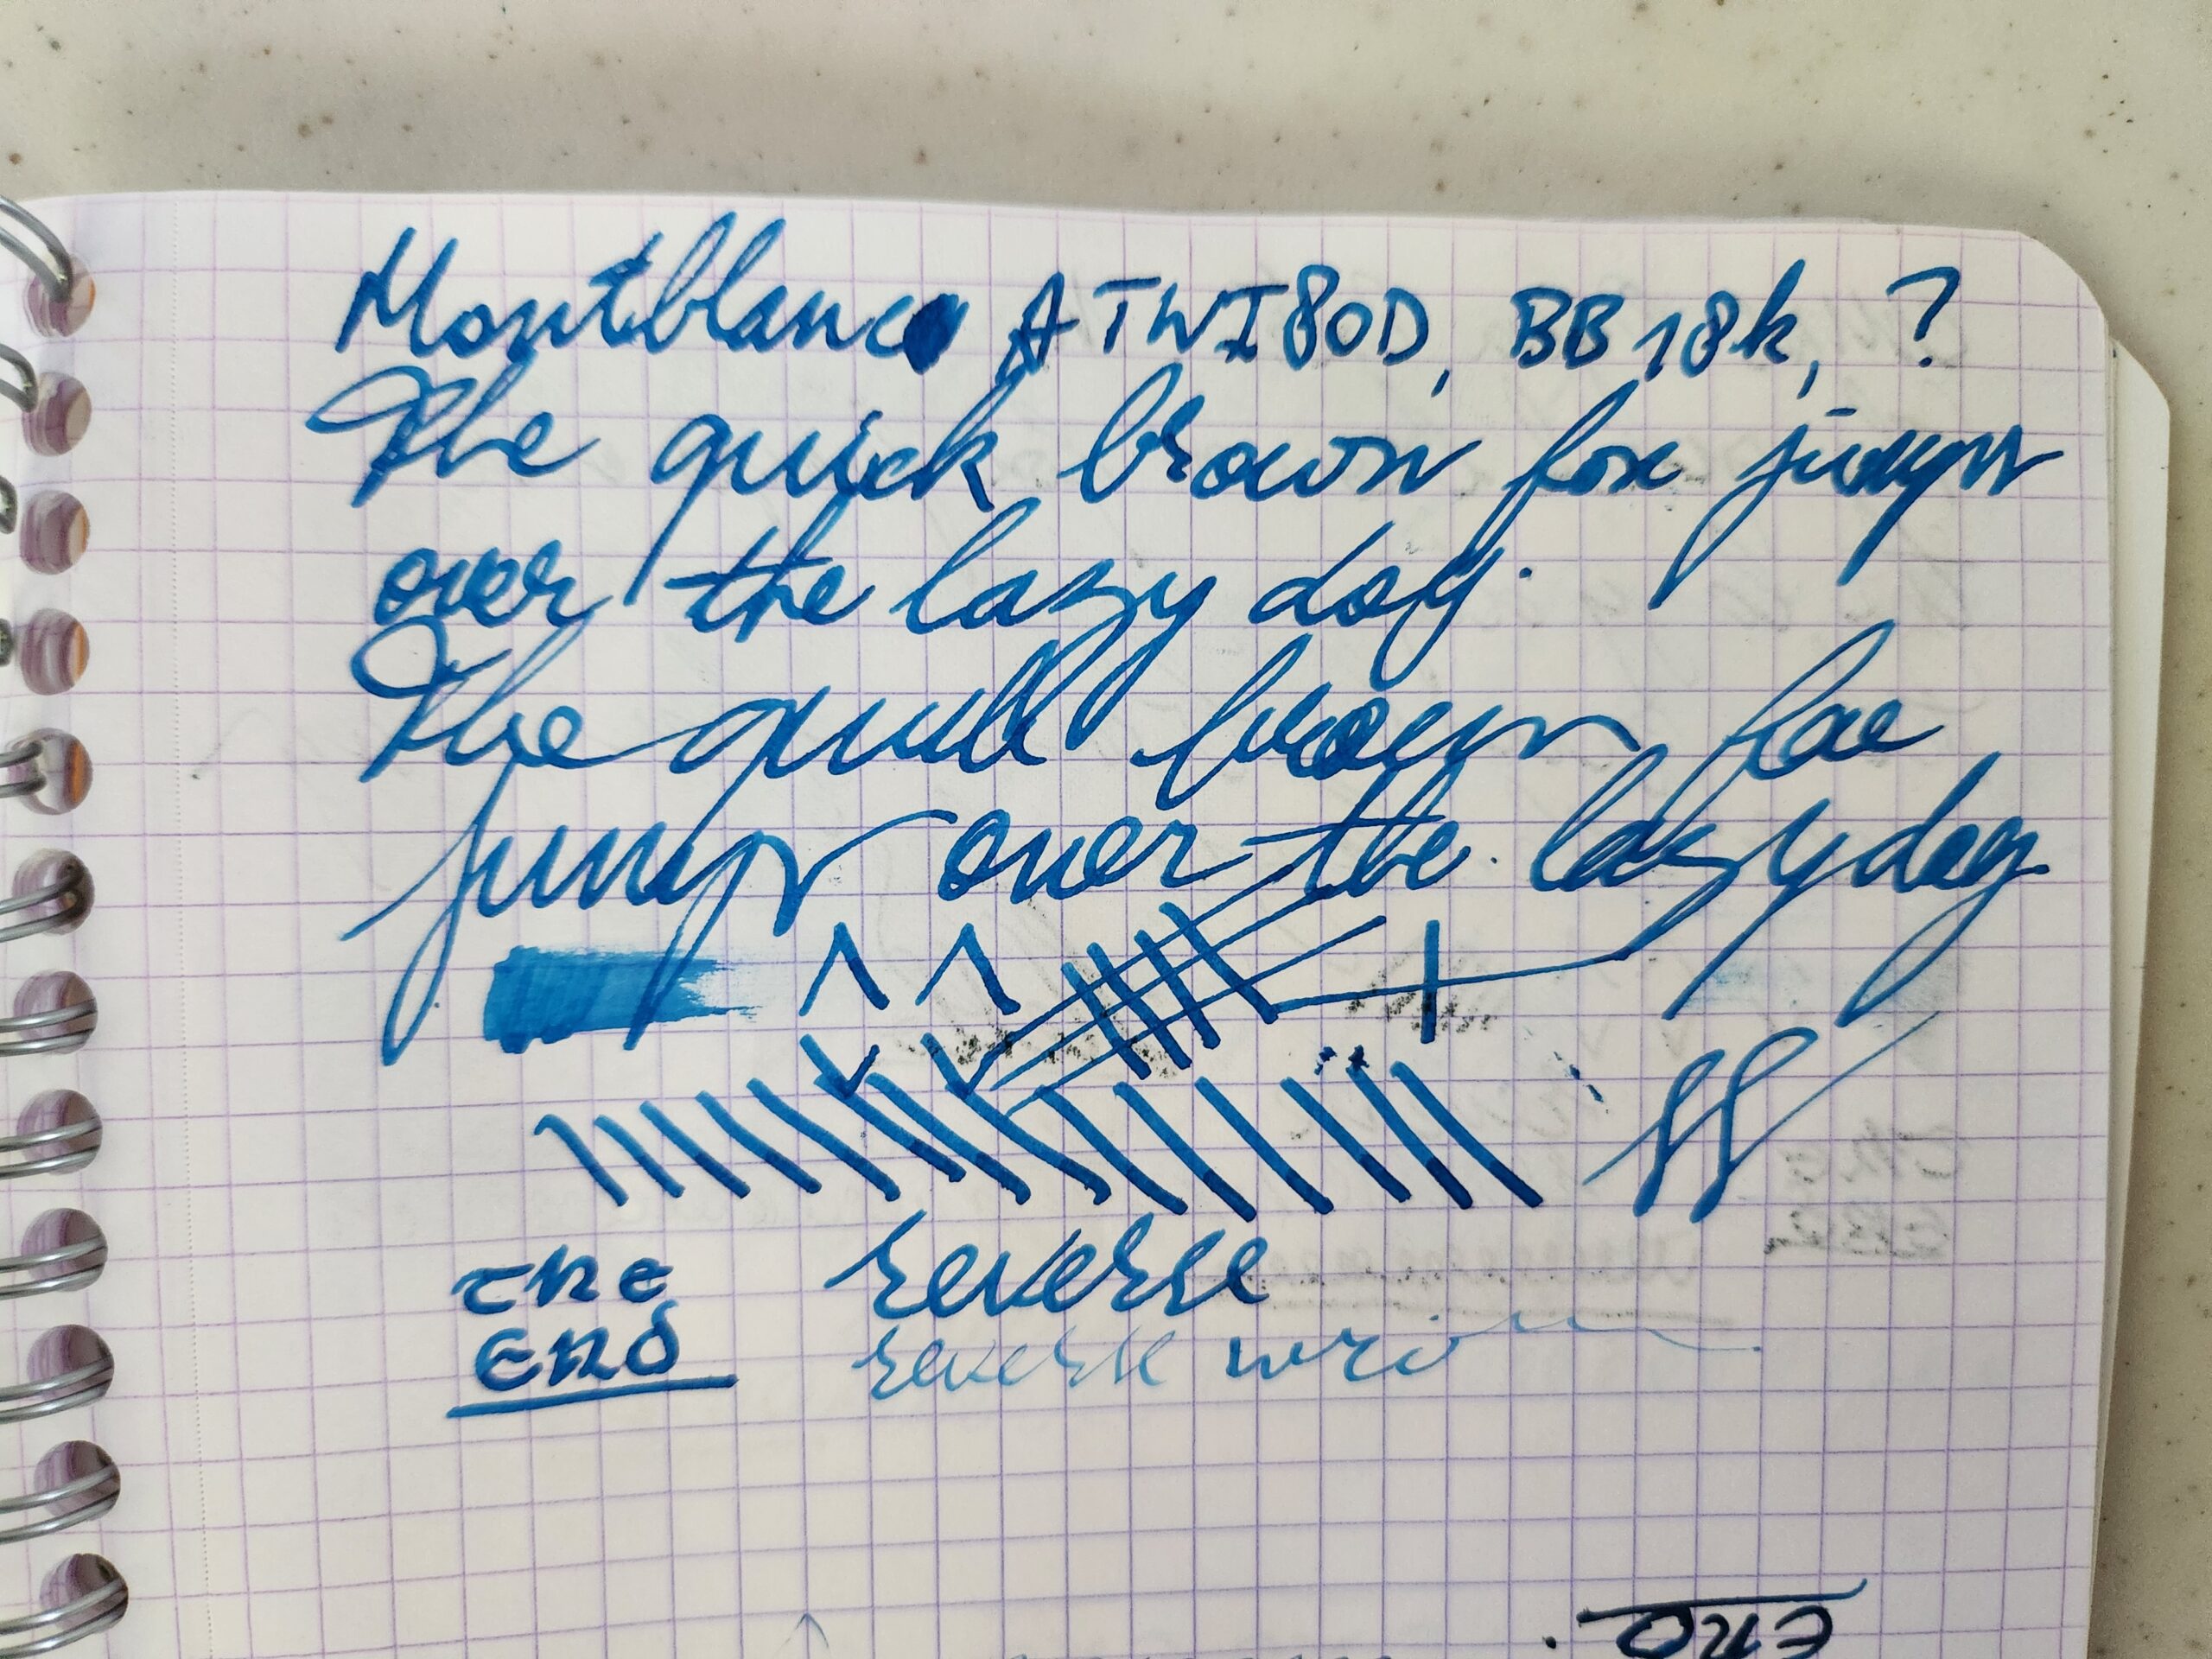 Montblanc A TWI80D, BB 18k, ?
The quick brown fox jumps
over the lazy dog.
The quick brown fox
jumps over the lazy dog
reverse
the
END
reverse wri
END